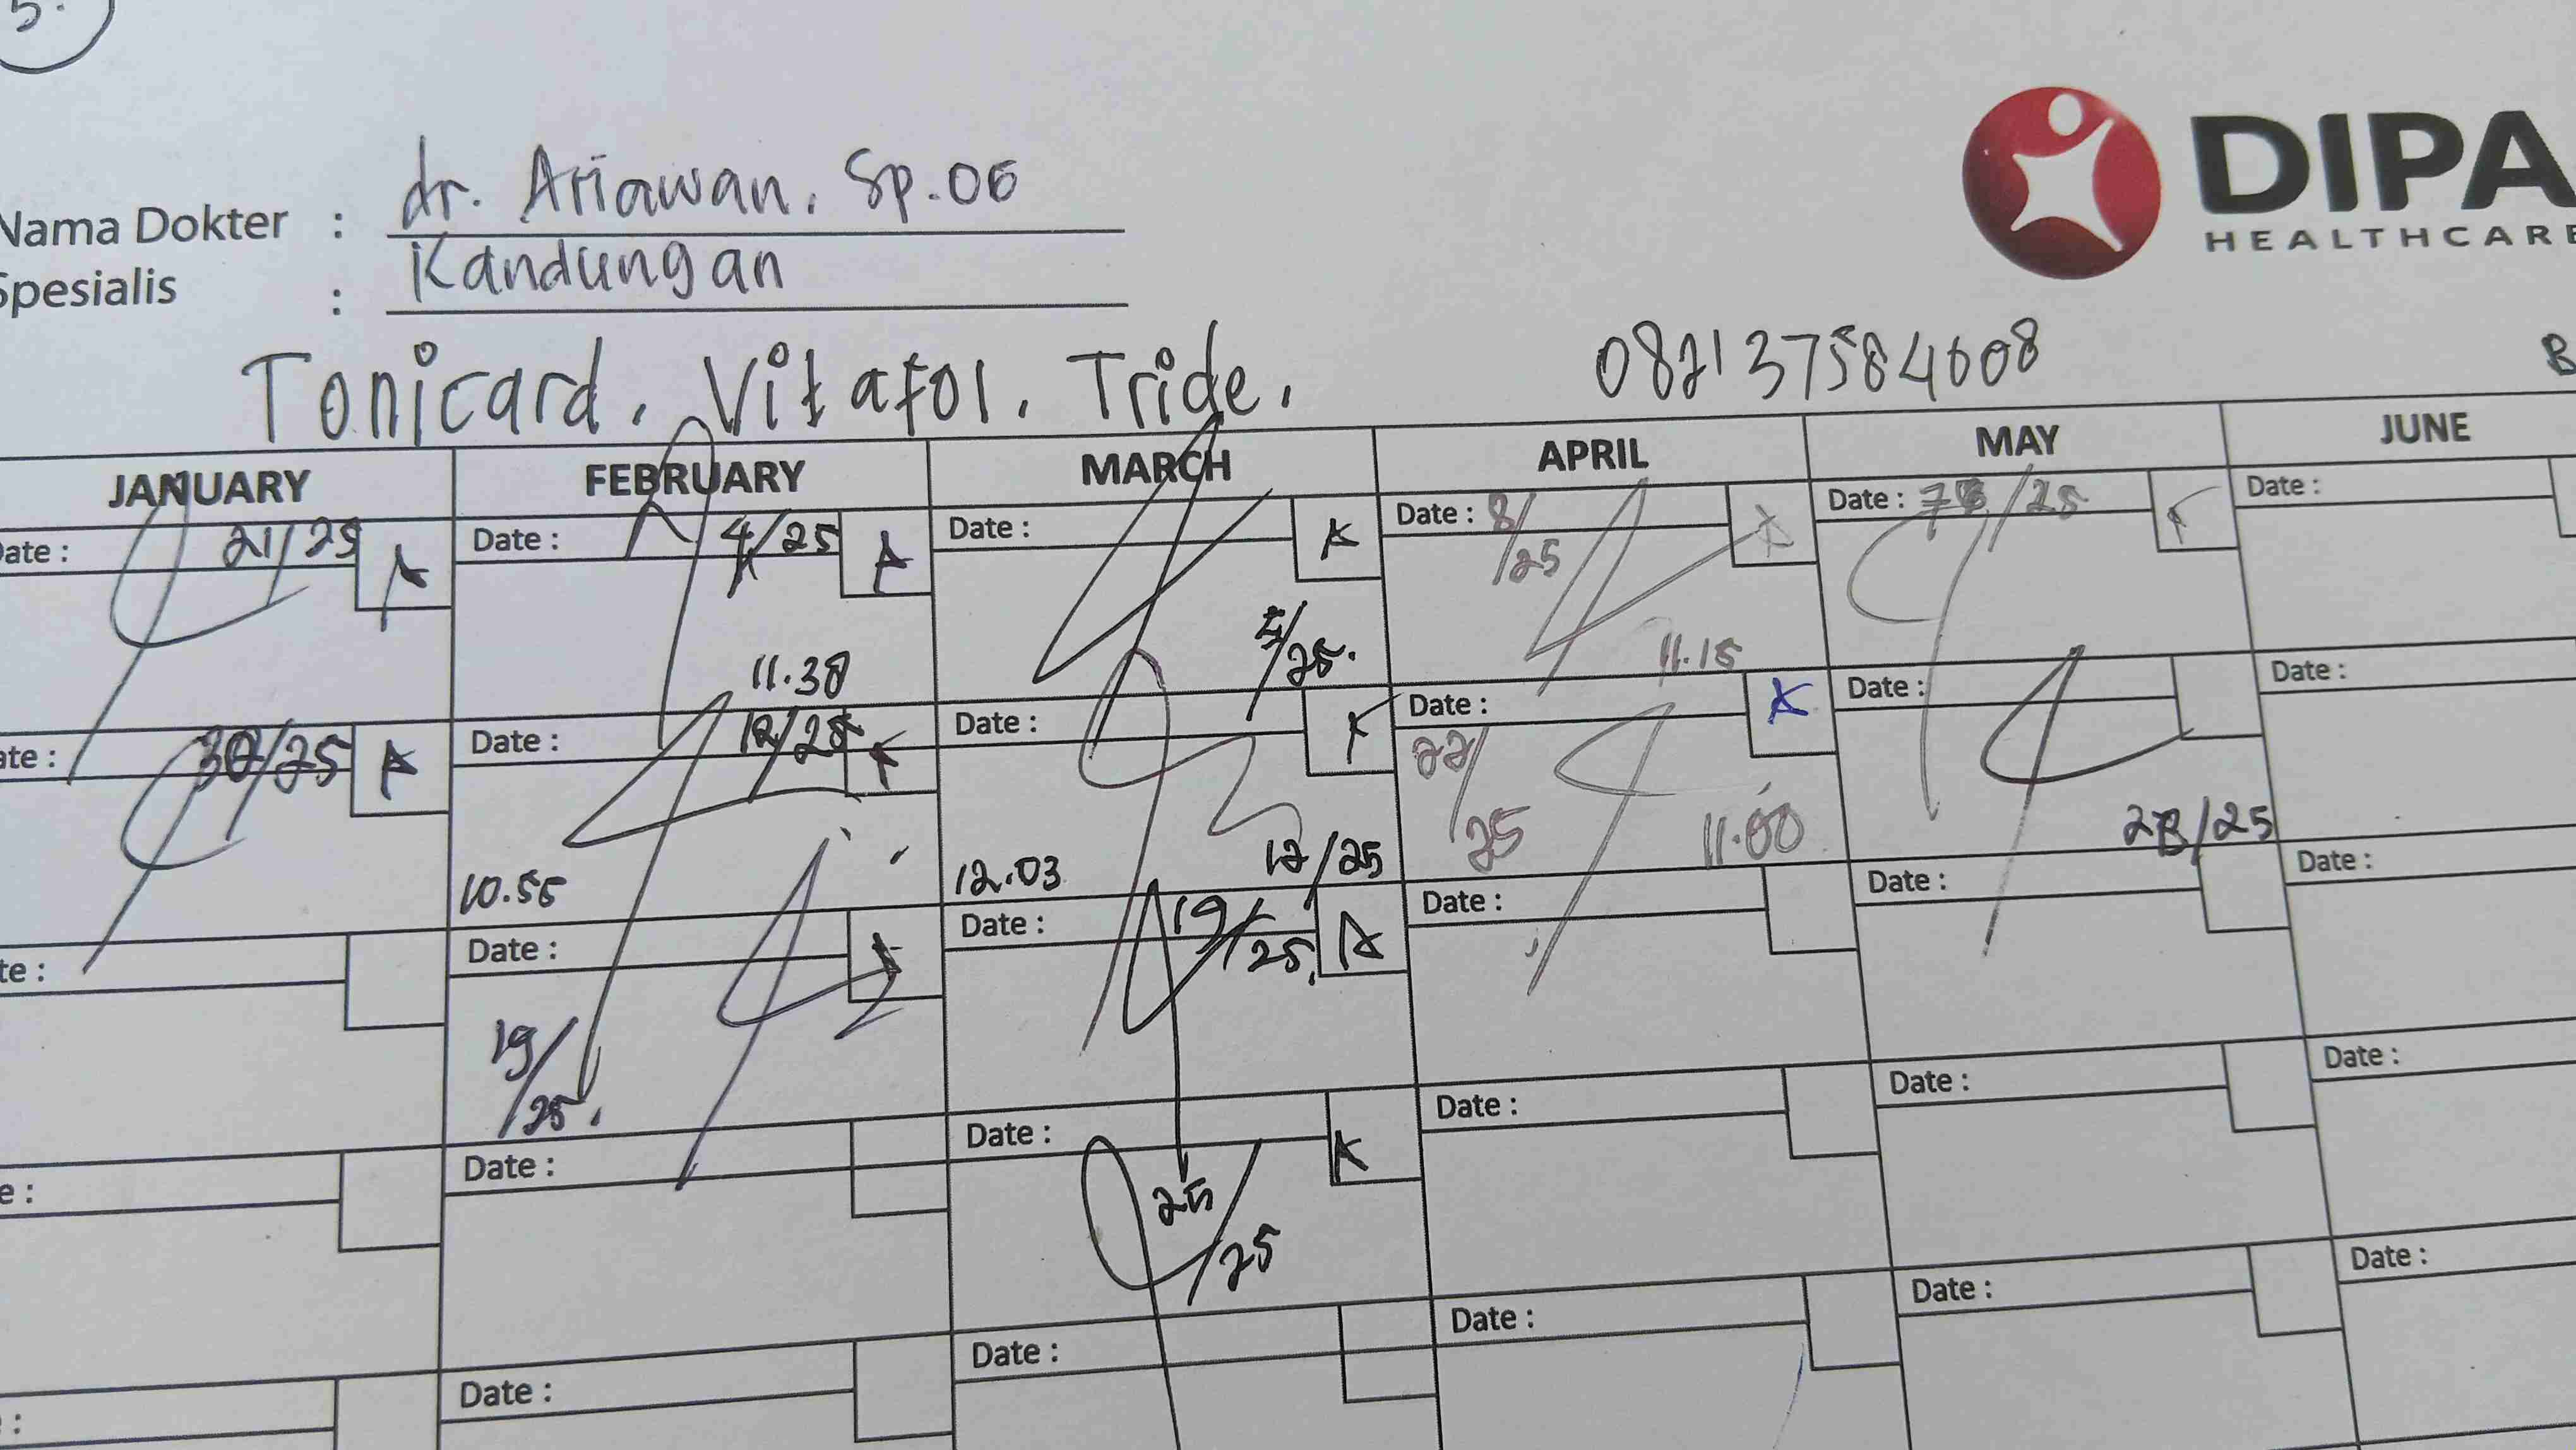 5.
DIPA
HEALTHCARE
Nama Dokter : dr. Ariawan, Sp.OG
Spesialis : Kandungan
Tonicard, Vitafol, Tride,
082137584608
B
JANUARY FEBRUARY MARCH APRIL MAY JUNE
Date : 21/25 A
Date : 4/25 A
Date : A
Date : 8/25 A
Date : /25
Date :
11.30
5/25.
11.15
Date : 30/25 A
Date : 12/25
Date :
Date : A
Date :
Date :
22/25
10.55
12.03
12/25
11.00
28/25
Date :
Date :
Date : 19/25. A
Date :
Date :
Date :
19/25.
Date :
Date :
Date : A
Date :
Date :
Date :
25/25
Date :
Date :
Date :
Date :
Date :